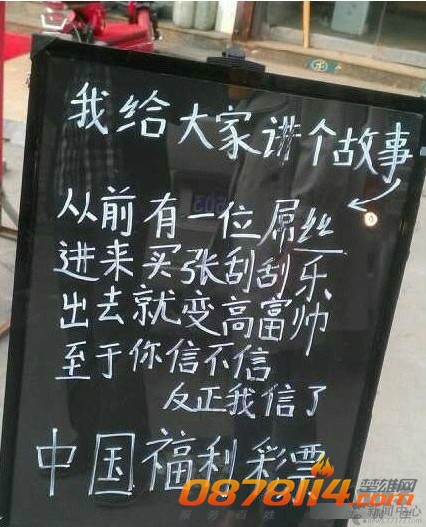 我给大家讲个故事
从前有一位屌丝
进来买张刮刮乐
出去就变高富帅
至于你信不信
反正我信了
中国福利彩票
楚雄网
0878114.com
新闻中心